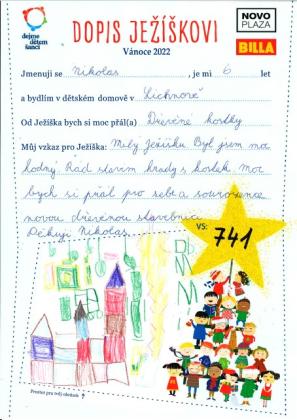 dejme
dětem
šanci
DOPIS JEŽÍŠKOVI
Vánoce 2022
NOVO
PLAZA
BILLA
Jmenuji se Nikolas, je mi 6 let
a bydlím v dětském domově v Lichnově
Od Ježíška bych si moc přál(a) Dřevěné kostky
Můj vzkaz pro Ježíška: Milý Ježíšku Byl jsem moc
hodný. Rád stavím hrady s kostek. Moc
bych si přál pro sebe a sourozence
novou dřevěnou stavebnici
Děkuji Nikolas.
VS: 741
Prostor pro tvůj obrázek